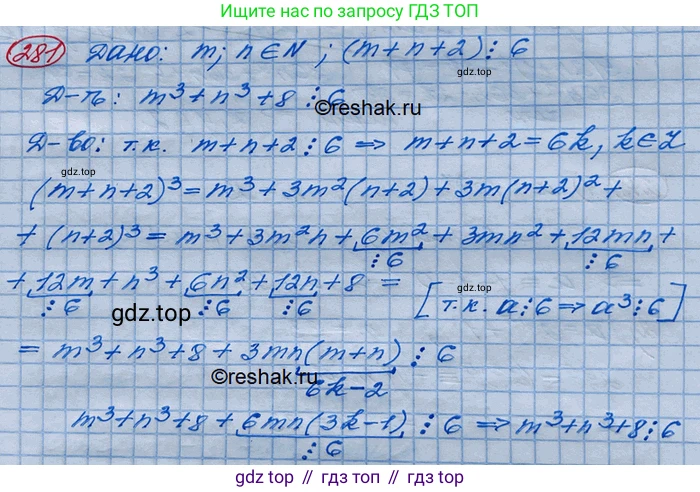 Ищите нас в поиске по запросу ГДЗ ТОП
281 Дано: m; n ∈ N ; (m+n+2) ⋮ 6
gdz.top
Д-ть: m³+n³+8 ⋮ 6
©reshak.ru
Д-во: т.к. m+n+2 ⋮ 6 => m+n+2=6k, k∈Z
gdz.top
(m+n+2)³ = m³+3m²(n+2)+3m(n+2)²+
+(n+2)³ = m³+3m²n+6m²+3mn²+12mn+
⋮6 ⋮6
+12m+n³+6n²+12n+8 = [т.к. a⋮6 => a³⋮6]
⋮6 ⋮6 ⋮6
gdz.top
gdz.top
= m³+n³+8+3mn(m+n) ⋮ 6
©reshak.ru
6k-2
m³+n³+8+6mn(3k-1) ⋮ 6 => m³+n³+8⋮6
⋮6
gdz top // гдз топ // gdz.top